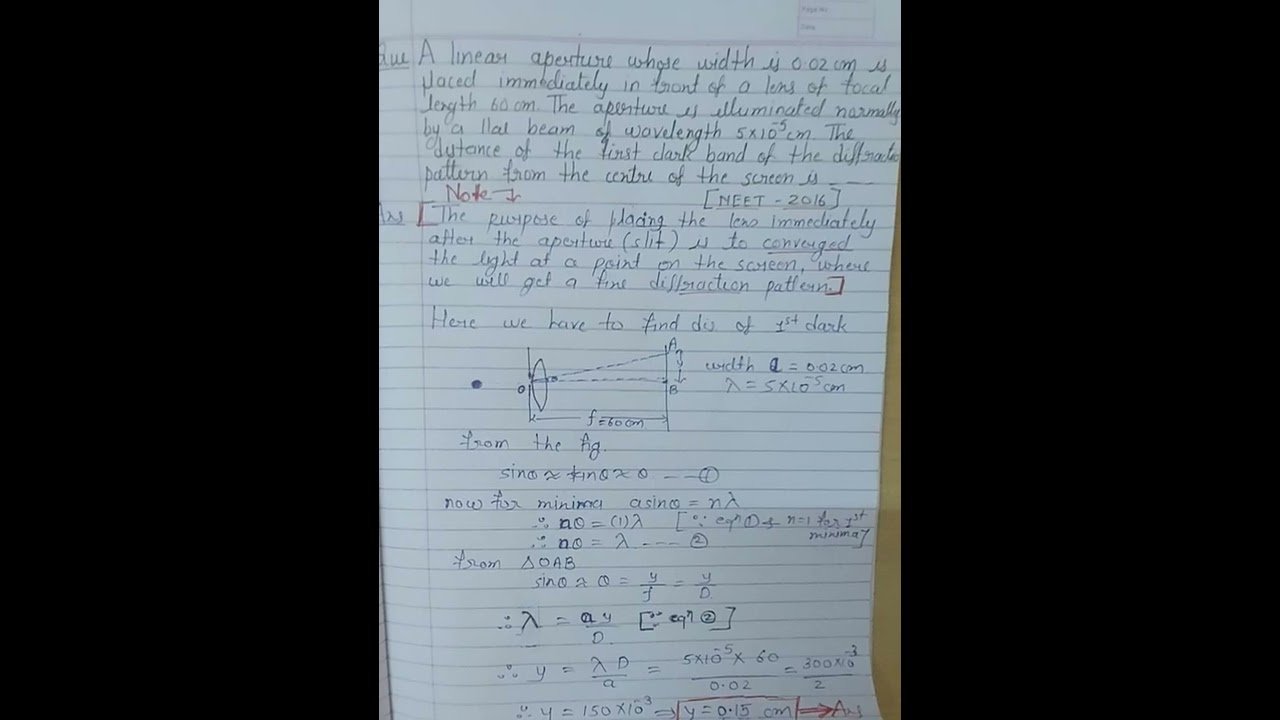 Page No.
Date
Que A linear aperture whose width is 0.02 cm is
placed immediately in front of a lens of focal
length 60 cm. The aperture is illuminated normally
by a llal beam of wavelength 5×10⁻⁵ cm. The
distance of the first dark band of the diffractio
pattern from the centre of the screen is ___
Note → [NEET - 2016]
Ans [The purpose of placing the lens immediately
after the aperture (slit) is to converged
the light at a point on the screen, where
we will get a fine diffraction pattern.]
Here we have to find dis of 1st dark
A
width a = 0.02 cm
λ = 5×10⁻⁵ cm
O
B
f = 60 cm
from the fig.
sinθ ≈ tanθ ≈ θ --- ①
now for minima asinθ = nλ
∴ aθ = (1)λ [∵ eqn ① & n=1 for 1st minima]
∴ aθ = λ --- ②
from △OAB
sinθ ≈ θ = y/f = y/D
∴ λ = ay/D [∵ eqn ②]
∴ y = λD/a = 5×10⁻⁵ × 60/0.02 = 300×10⁻³/2
∴ y = 150×10⁻³ ⇒ y = 0.15 cm → Ans